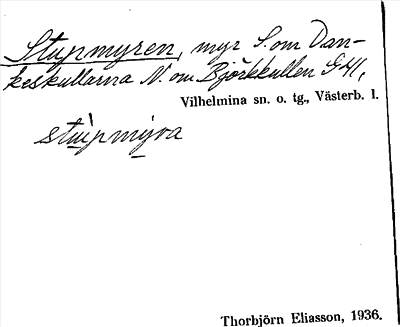 Stupmyren, myr S. om Dan-
keskullarna N. om Björkkullen G41,
Vilhelmina sn. o. tg., Västerb. l.
stùpmýra
Thorbjörn Eliasson, 1936.